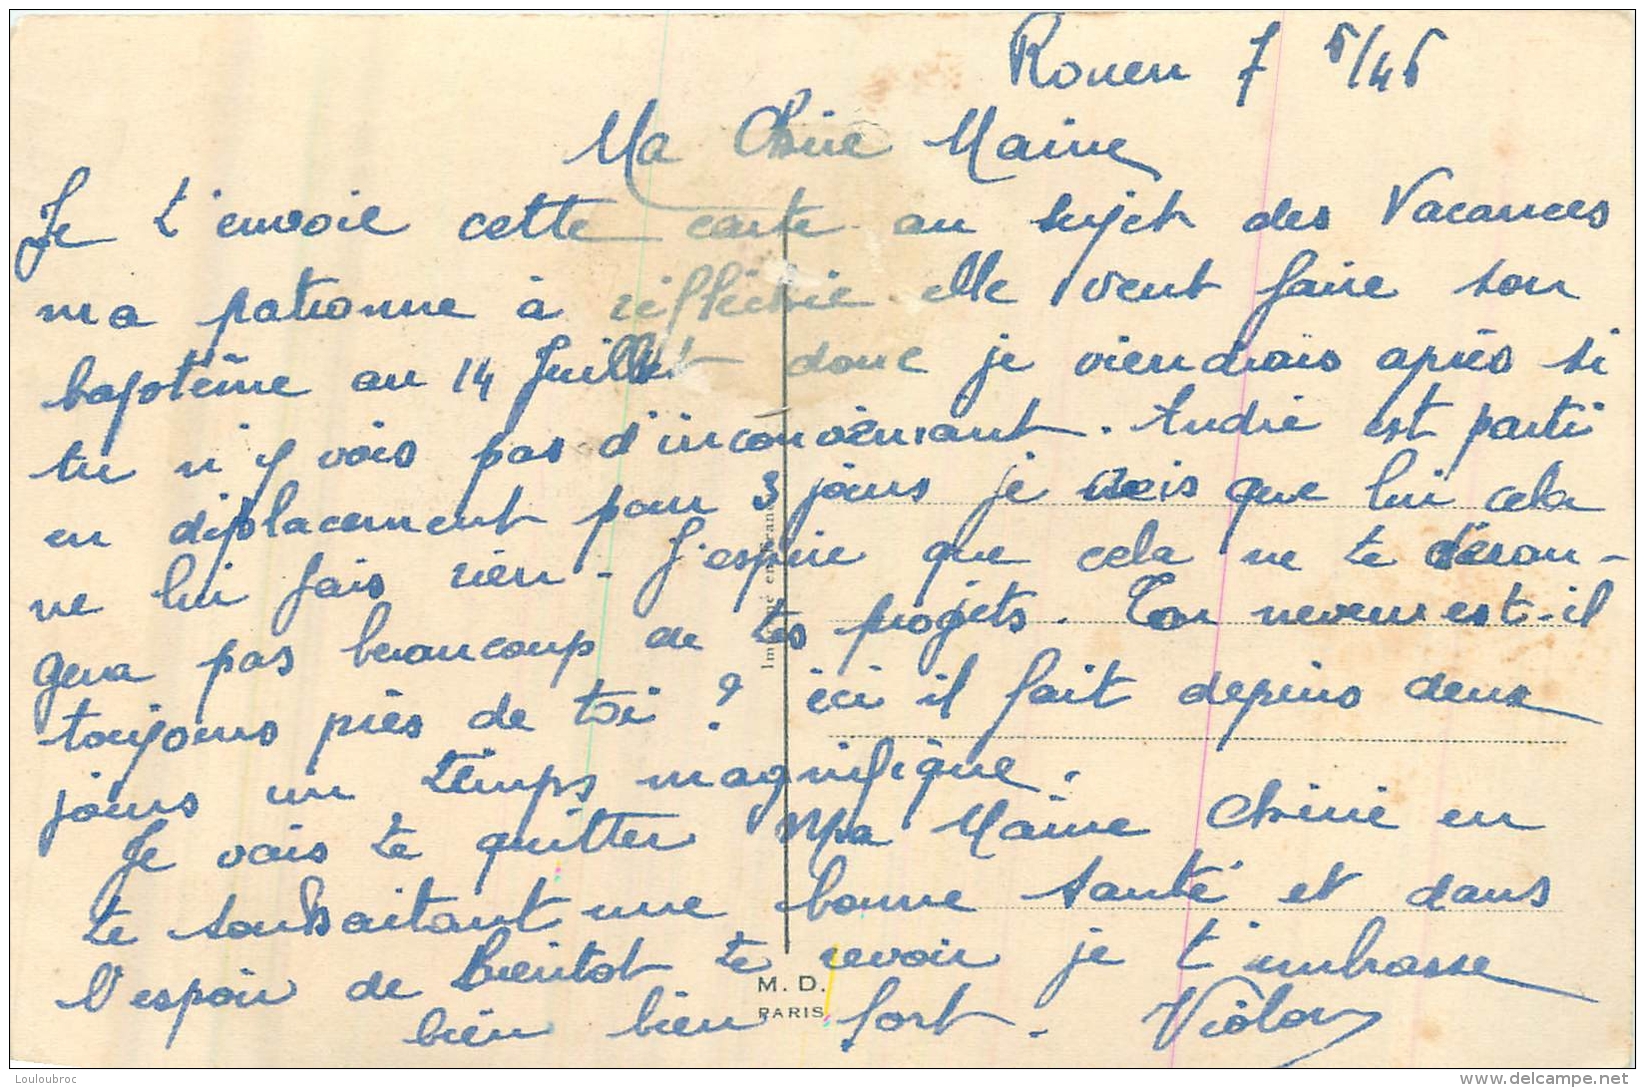 Rouen 7 6/46
Ma Chère Maine
Je t'envoie cette carte au sujet des Vacances
ma patronne à réfléchie elle veut faire son
baptême au 14 Juillet donc je viendrais après si
tu n'y vois pas d'inconvénient. André est parti
en déplacement pour 3 jours je crois que lui cela
ne lui fais rien. J'espère que cela ne te déran-
gera pas beaucoup de tes projets. Ton neveu est-il
toujours près de toi ? ici il fait depuis deux
jours un temps magnifique.
Je vais te quitter Ma Maine Chérie en
te souhaitant une bonne santé et dans
l'espoir de bientot te revoir je t'embrasse
bien bien fort.
M. D.
PARIS
Louloubroc
www.delcampe.net